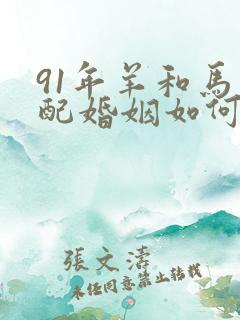 91年羊和馬
配婚姻如何
張文濤
未经同意禁止转载